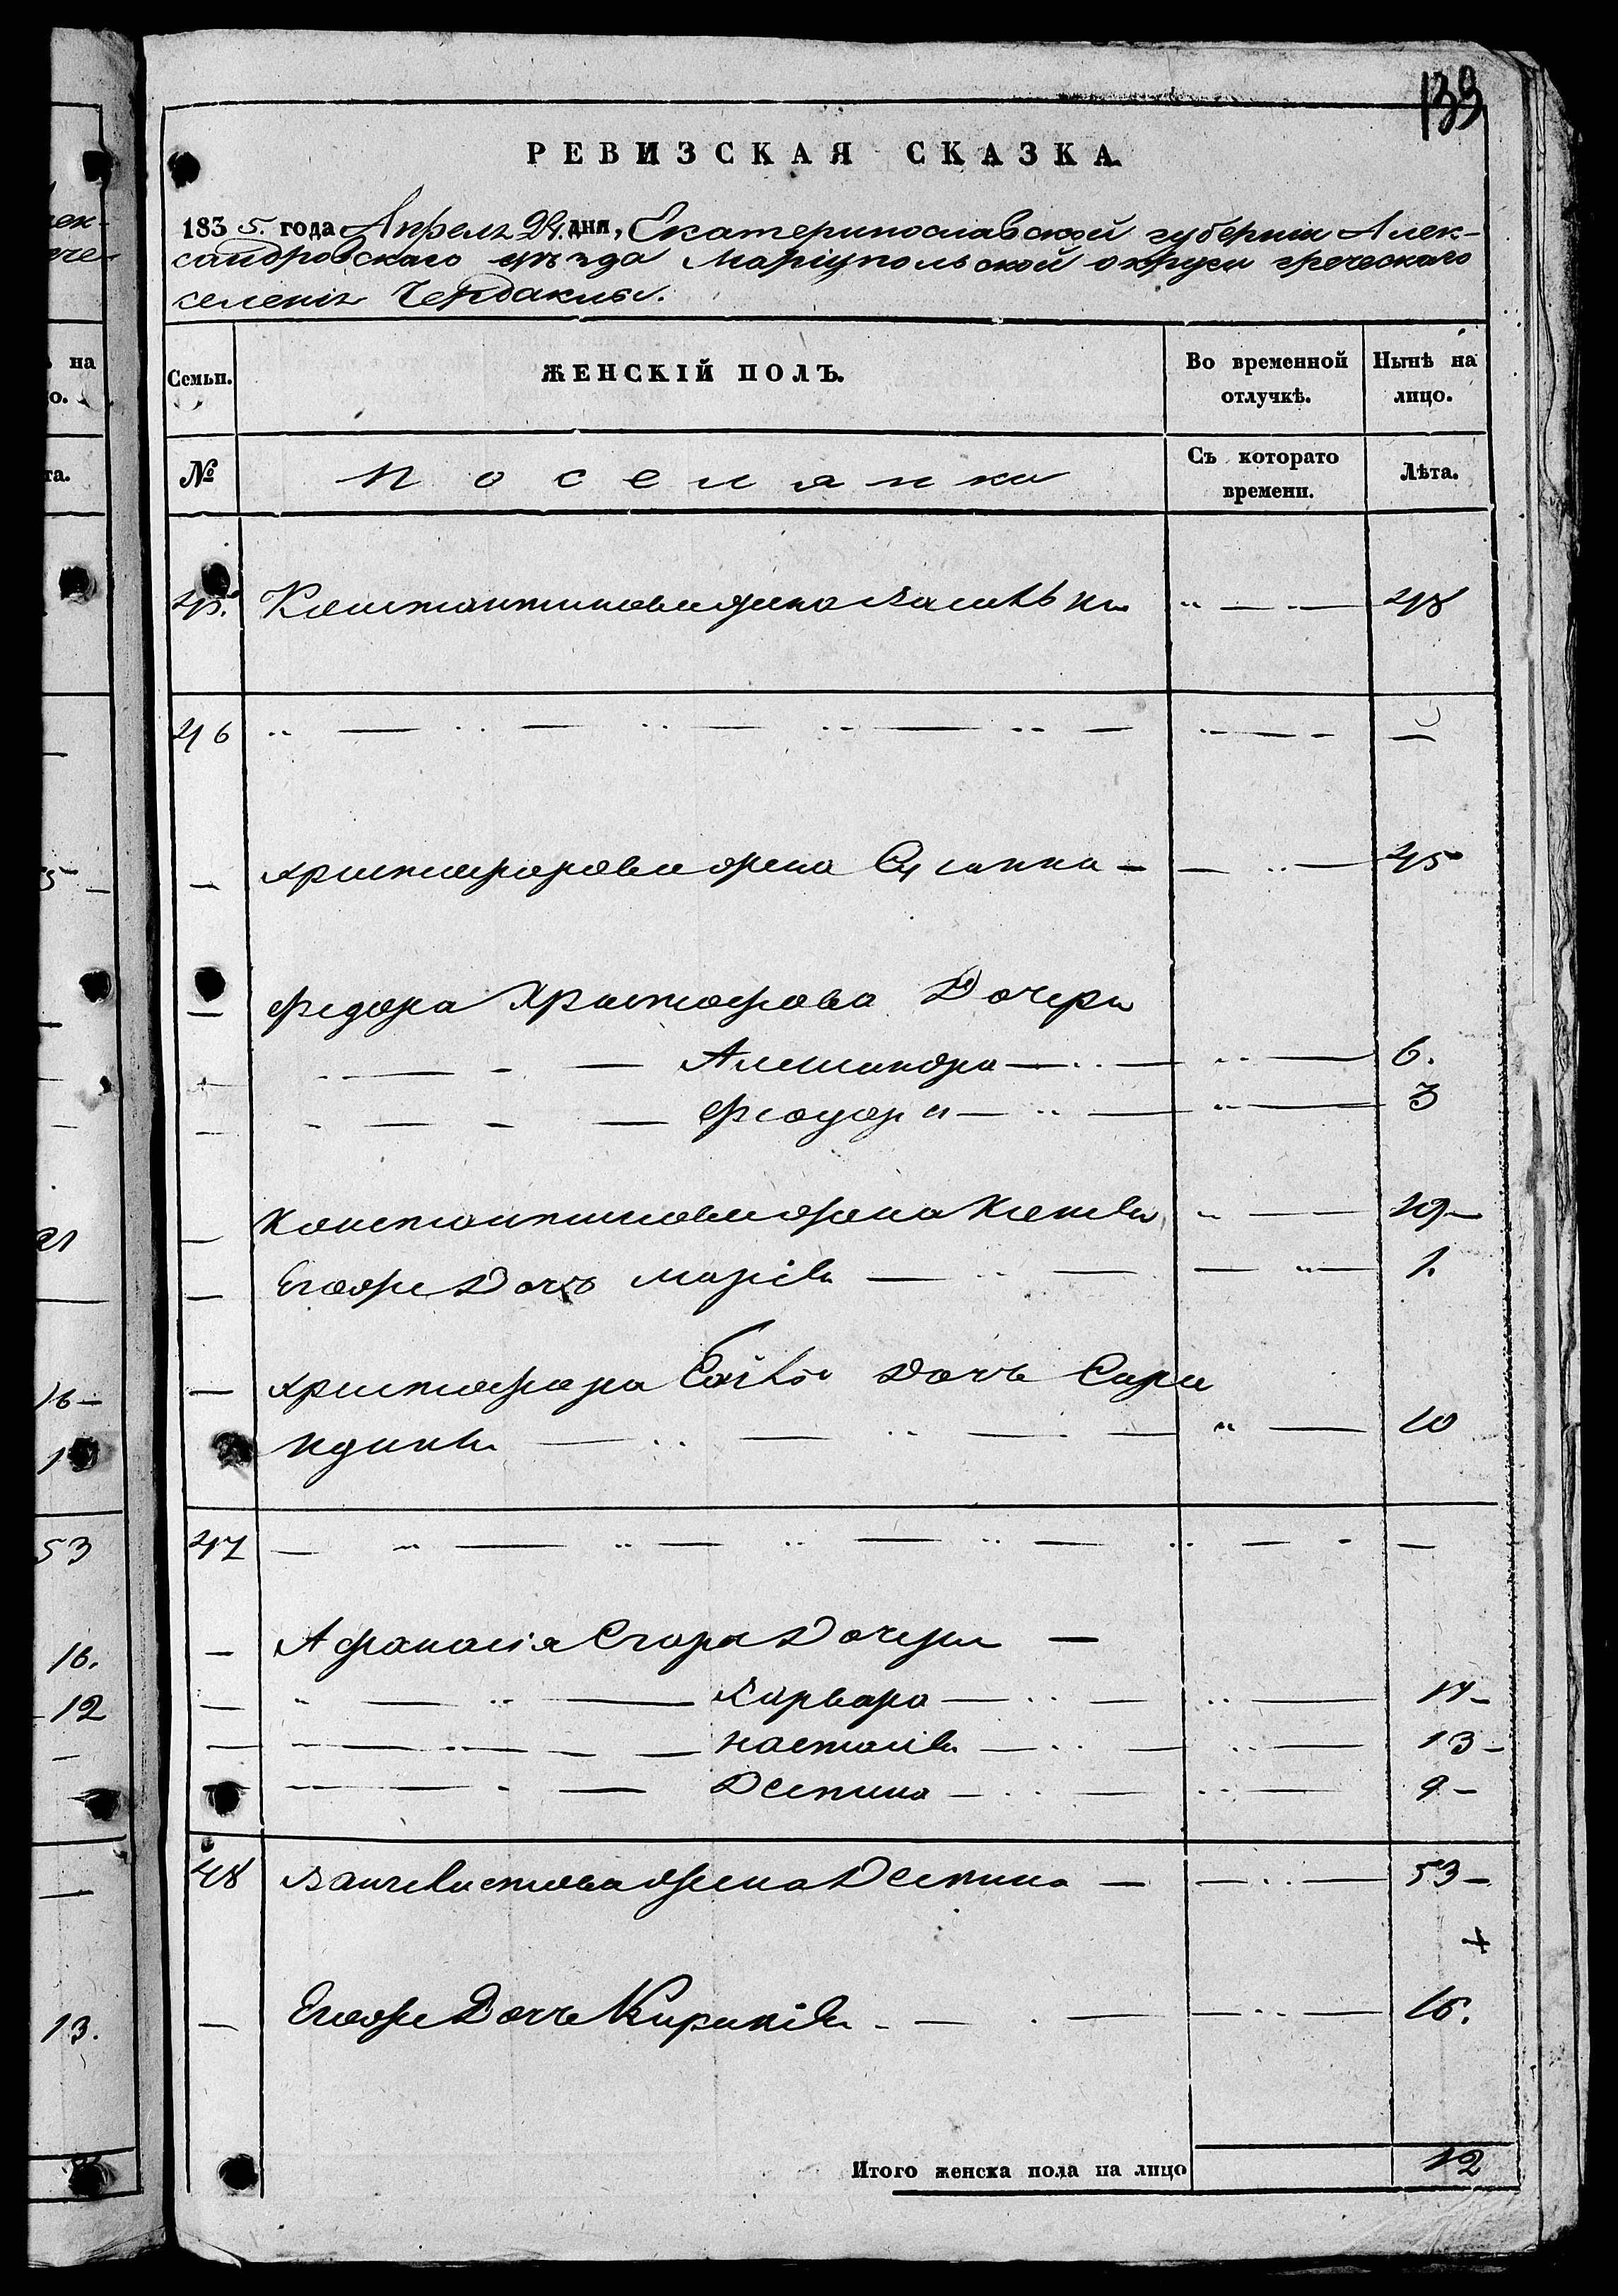 139
РЕВИЗСКАЯ СКАЗКА.
1835. года Апреля 24. дня, Екатеринославской губернiи Алек-
сандровскаго уѣзда Марiупольской округи греческаго
селенiя Чердаклы.
Семьи. ЖЕНСКIЙ ПОЛЪ. Во временной отлучкѣ. Нынѣ на лицо.
№ Поселянки Съ котораго времени. Лѣта.
45. Константинова жена 48
46
Христофорова жена 45
Федора Христофорова Дочери
Александра 6.
Феодора 3
Константинова жена 19
Егоже Дочь Марiя 1.
Христофора Дочь
10
47
Афанасiя Егора Дочери
Варвара 14
Настасiя 13
Деспина 9
48 жена Деспина 53
+
Егоже Дочь Кирикiя 16.
Итого женска пола на лицо 12
на
о.
та.
21
16
53
16.
12
13.